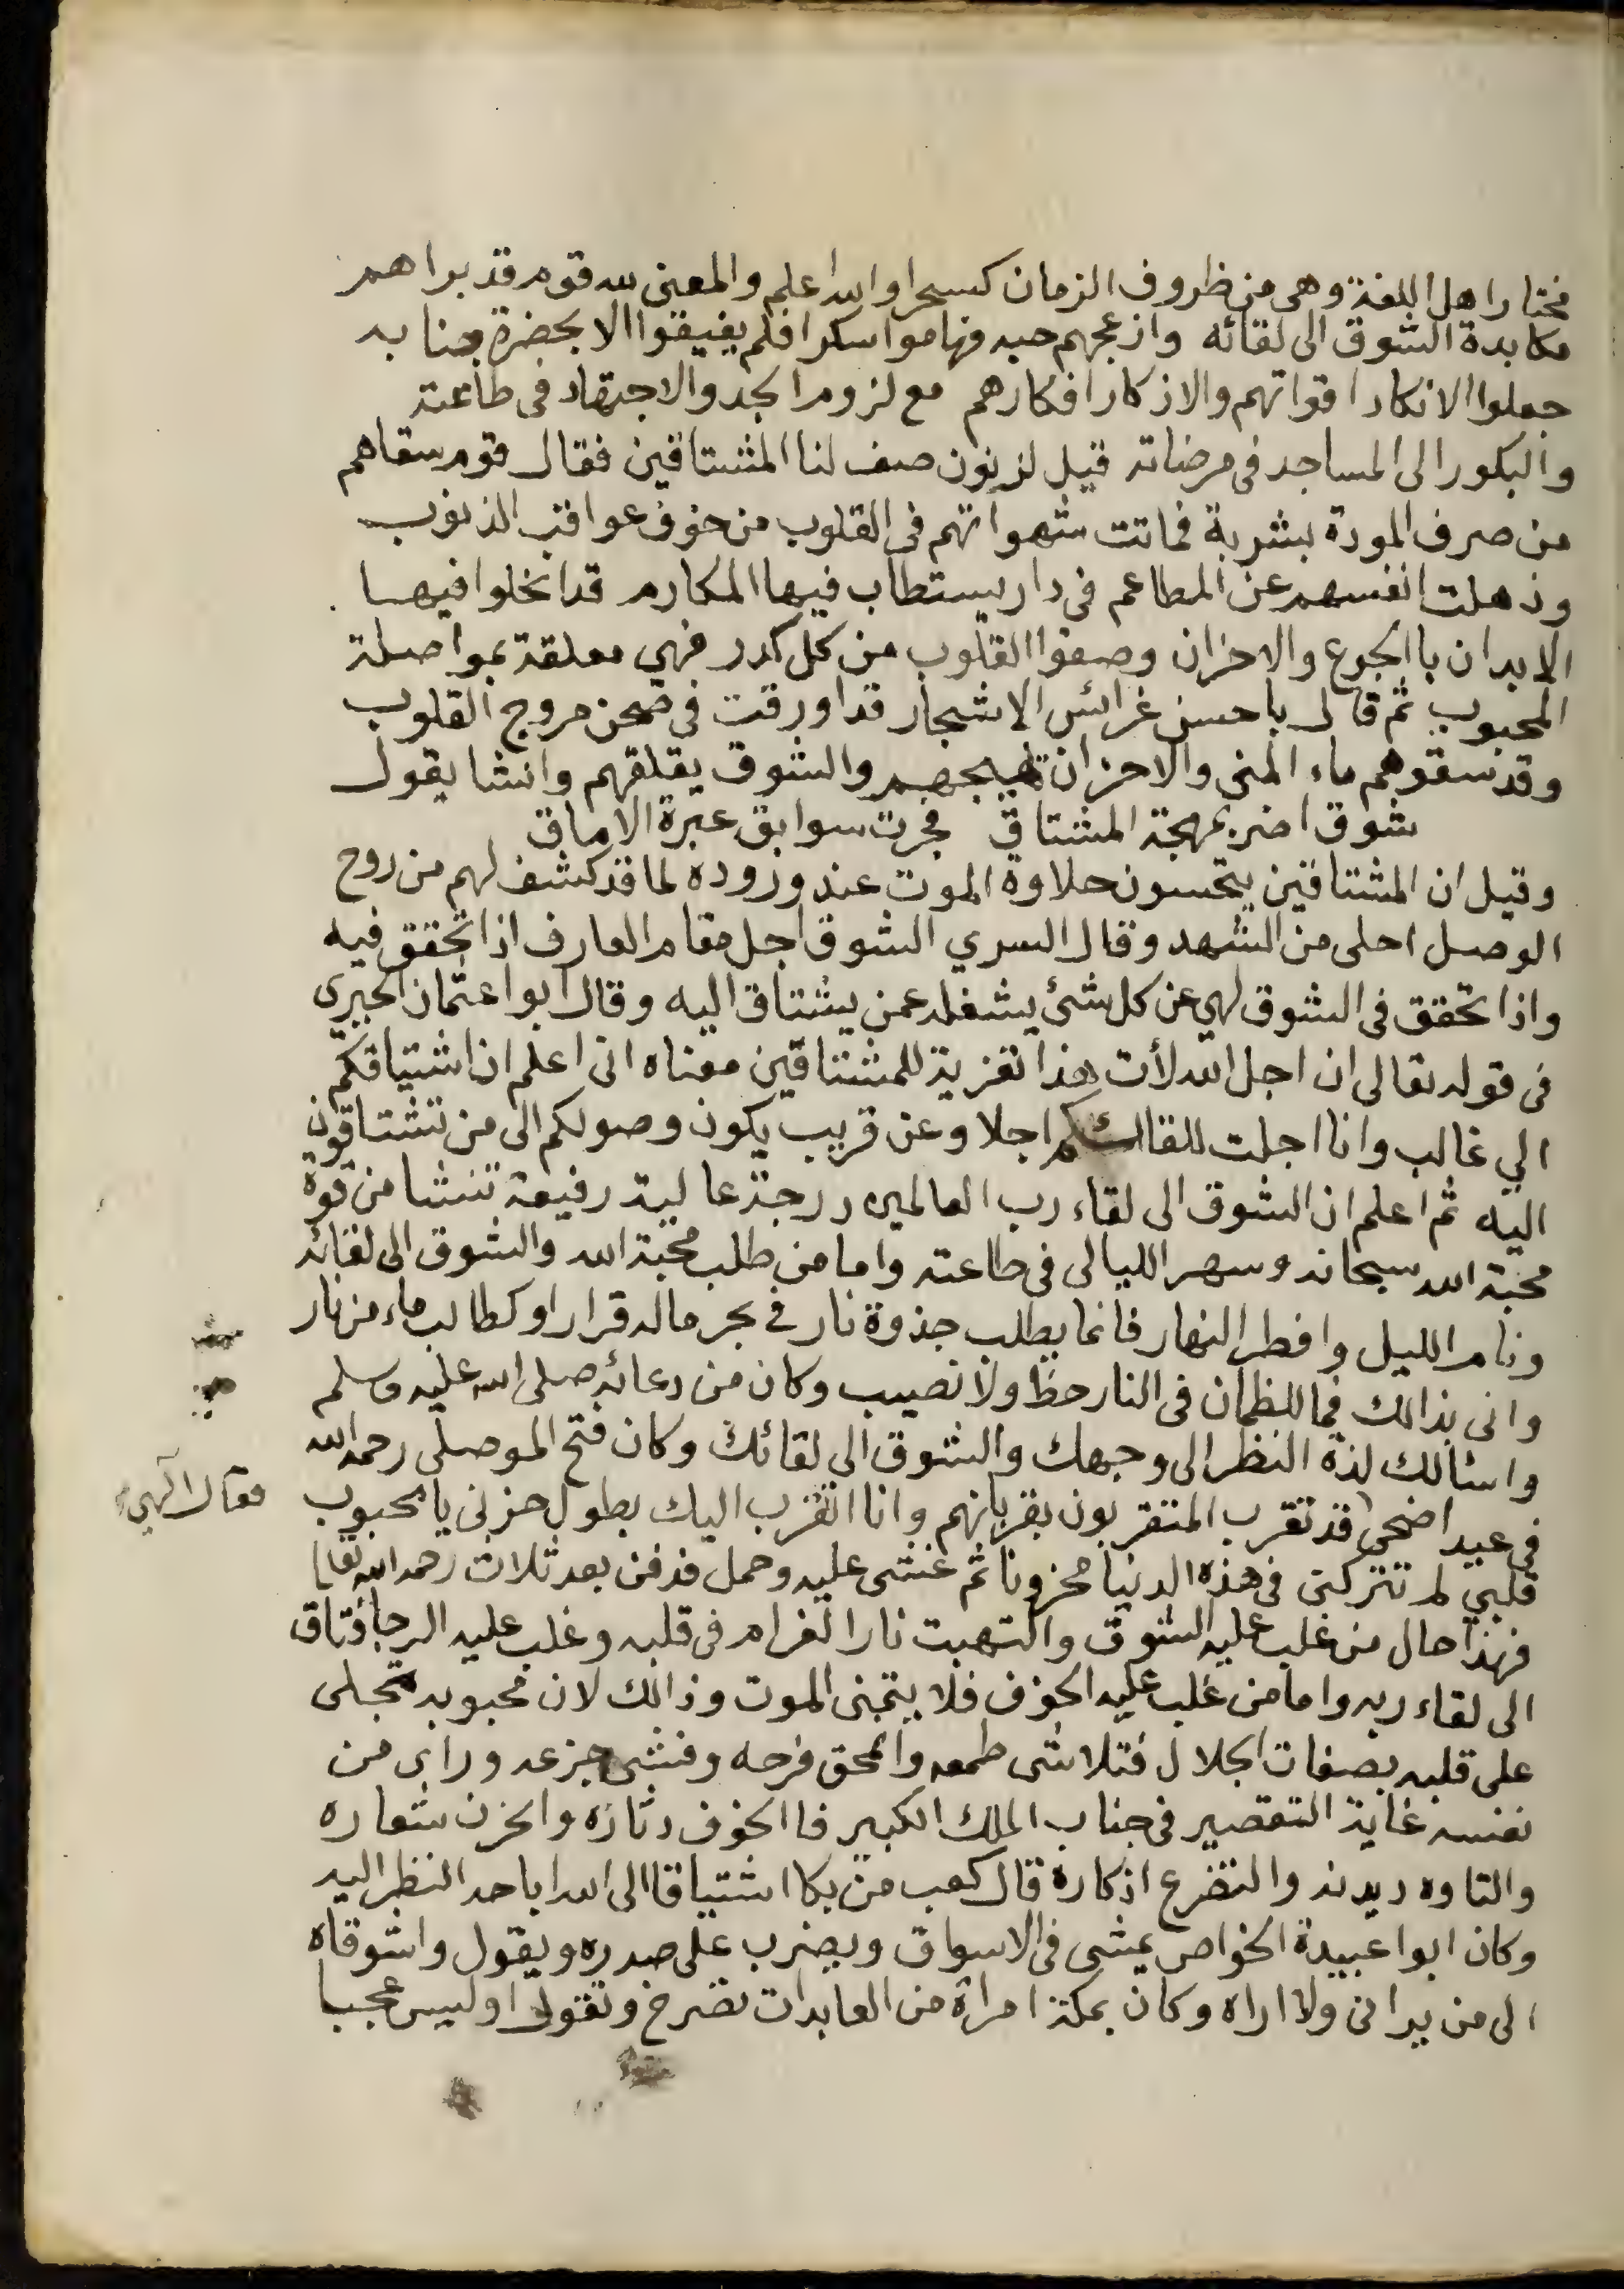 مختار اهل اللغة وهى من ظروف الزمان كسحرا والله اعلم والمعنى لله قوم قد براهم
مكابدة الشوق الى لقائه وازعجهم حبه فهاموا سكرا فلم يفيقوا الا بحضرة جنابه
جعلوا الانكاد اقواتهم والاذكار افكارهم مع لزوم الجد والاجتهاد فى طاعته
والبكور الى المساجد فى مرضاته قيل لذنون صف لنا المشتاقين فقال قوم سقاهم
من صرف المودة بشربة فماتت شهواتهم فى القلوب من خوف عواقب الذنوب
وذهلت انفسهم عن المطاعم فى دار يستطاب فيها المكارم قد انحلوا فيها
الابدان باالجوع والاحزان وصفوا القلوب من كل كدر فهي معلقة بمواصلة
المحبوب ثم قال باحسن غرائس الاشجار قد اورقت فى صحن مروج القلوب
وقد سقوهم ماء المنى والاحزان تهيجهم والشوق يقلقهم وانشا يقول
شوق اضر بمهجة المشتاق فجرت سوابق عبرة الاماق
وقيل ان المشتاقين يتحسون حلاوة الموت عند وروده لما قد كشف لهم من روح
الوصل احلى من الشهد وقال السري الشوق اجل مقام العارف اذا تحقق فيه
واذا تحقق فى الشوق لهي عن كل شئ يشغله عمن يشتاق اليه وقال ابوا عثمان الحيري
فى قوله تعالى ان اجل الله لأت هذا تعزية للمشتاقين معناه انى اعلم ان اشتياقكم
الي غالب وانا اجلت للقائكم اجلا وعن قريب يكون وصولكم الى من تشتاقون
اليه ثم اعلم ان الشوق الى لقاء رب العالمين درجة عالية رفيعة تنشا من قوة
محبة الله سبحانه وسهر الليالى فى طاعته واما من طلب محبة الله والشوق الى لقائه
ونام الليل وافطر النهار فانما يطلب جذوة نار فى بحر ماله قرار او كطالب ماء من نار
وانى بذالك فما للظمان فى النار حظ ولا نصيب وكان من دعائه صلى الله عليه وسلم
واسئالك لذة النظر الى وجهك والشوق الى لقائك وكان فتح الموصلى رحمه الله
فى عيد اضحى قد تقرب المتقربون بقربانهم وانا اتقرب اليك بطول حزنى يا محبوب
فقال الهي
قلبي لم تتركنى فى هذه الدنيا محزونا ثم غشى عليه وحمل فدفن بعد ثلاث رحمه الله تعالى
فهذا حال من غلب عليه الشوق والتهبت نار الغرام فى قلبه وغلب عليه الرجا فتاق
الى لقاء ربه واما من غلب عليه الخوف فلا يتمنى الموت وذالك لان محبوبه تجلى
على قلبه بصفات الجلال فتلاشى طمعه وانمحق فرحه وفشى جزعه وراى من
نفسه غاية التقصير فى جناب الملك الكبير فاالخوف دثاره والحزن شعاره
والتاوه ديدنه والتضرع اذكاره قال كعب من بكا اشتياقا الى الله اباحه النظر اليه
وكان ابوا عبيدة الخواص يمشى فى الاسواق ويضرب على صدره ويقول واشوقاه
الى من يرانى ولا اراه وكان بمكة امراة من العابدات تصرخ وتقول اوليس عجبا